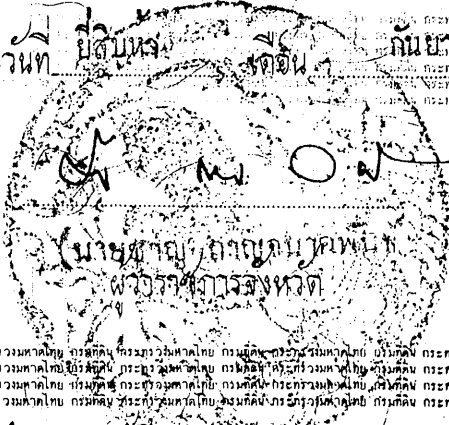 วันที่ ยี่สิบห้า เดือน กันยา
(นายชาญ กาญจนาคพันธุ์)
ผู้ว่าราชการจังหวัด
วงมหาดไทย กรมที่ดิน กระทรวงมหาดไทย กรมที่ดิน กระทรวงมหาดไทย กรมที่ดิน กระท
วงมหาดไทย กรมที่ดิน กระทรวงมหาดไทย กรมที่ดิน กระทรวงมหาดไทย กรมที่ดิน กระท
วงมหาดไทย กรมที่ดิน กระทรวงมหาดไทย กรมที่ดิน กระทรวงมหาดไทย กรมที่ดิน กระท
วงมหาดไทย กรมที่ดิน กระทรวงมหาดไทย กรมที่ดิน กระทรวงมหาดไทย กรมที่ดิน กระท